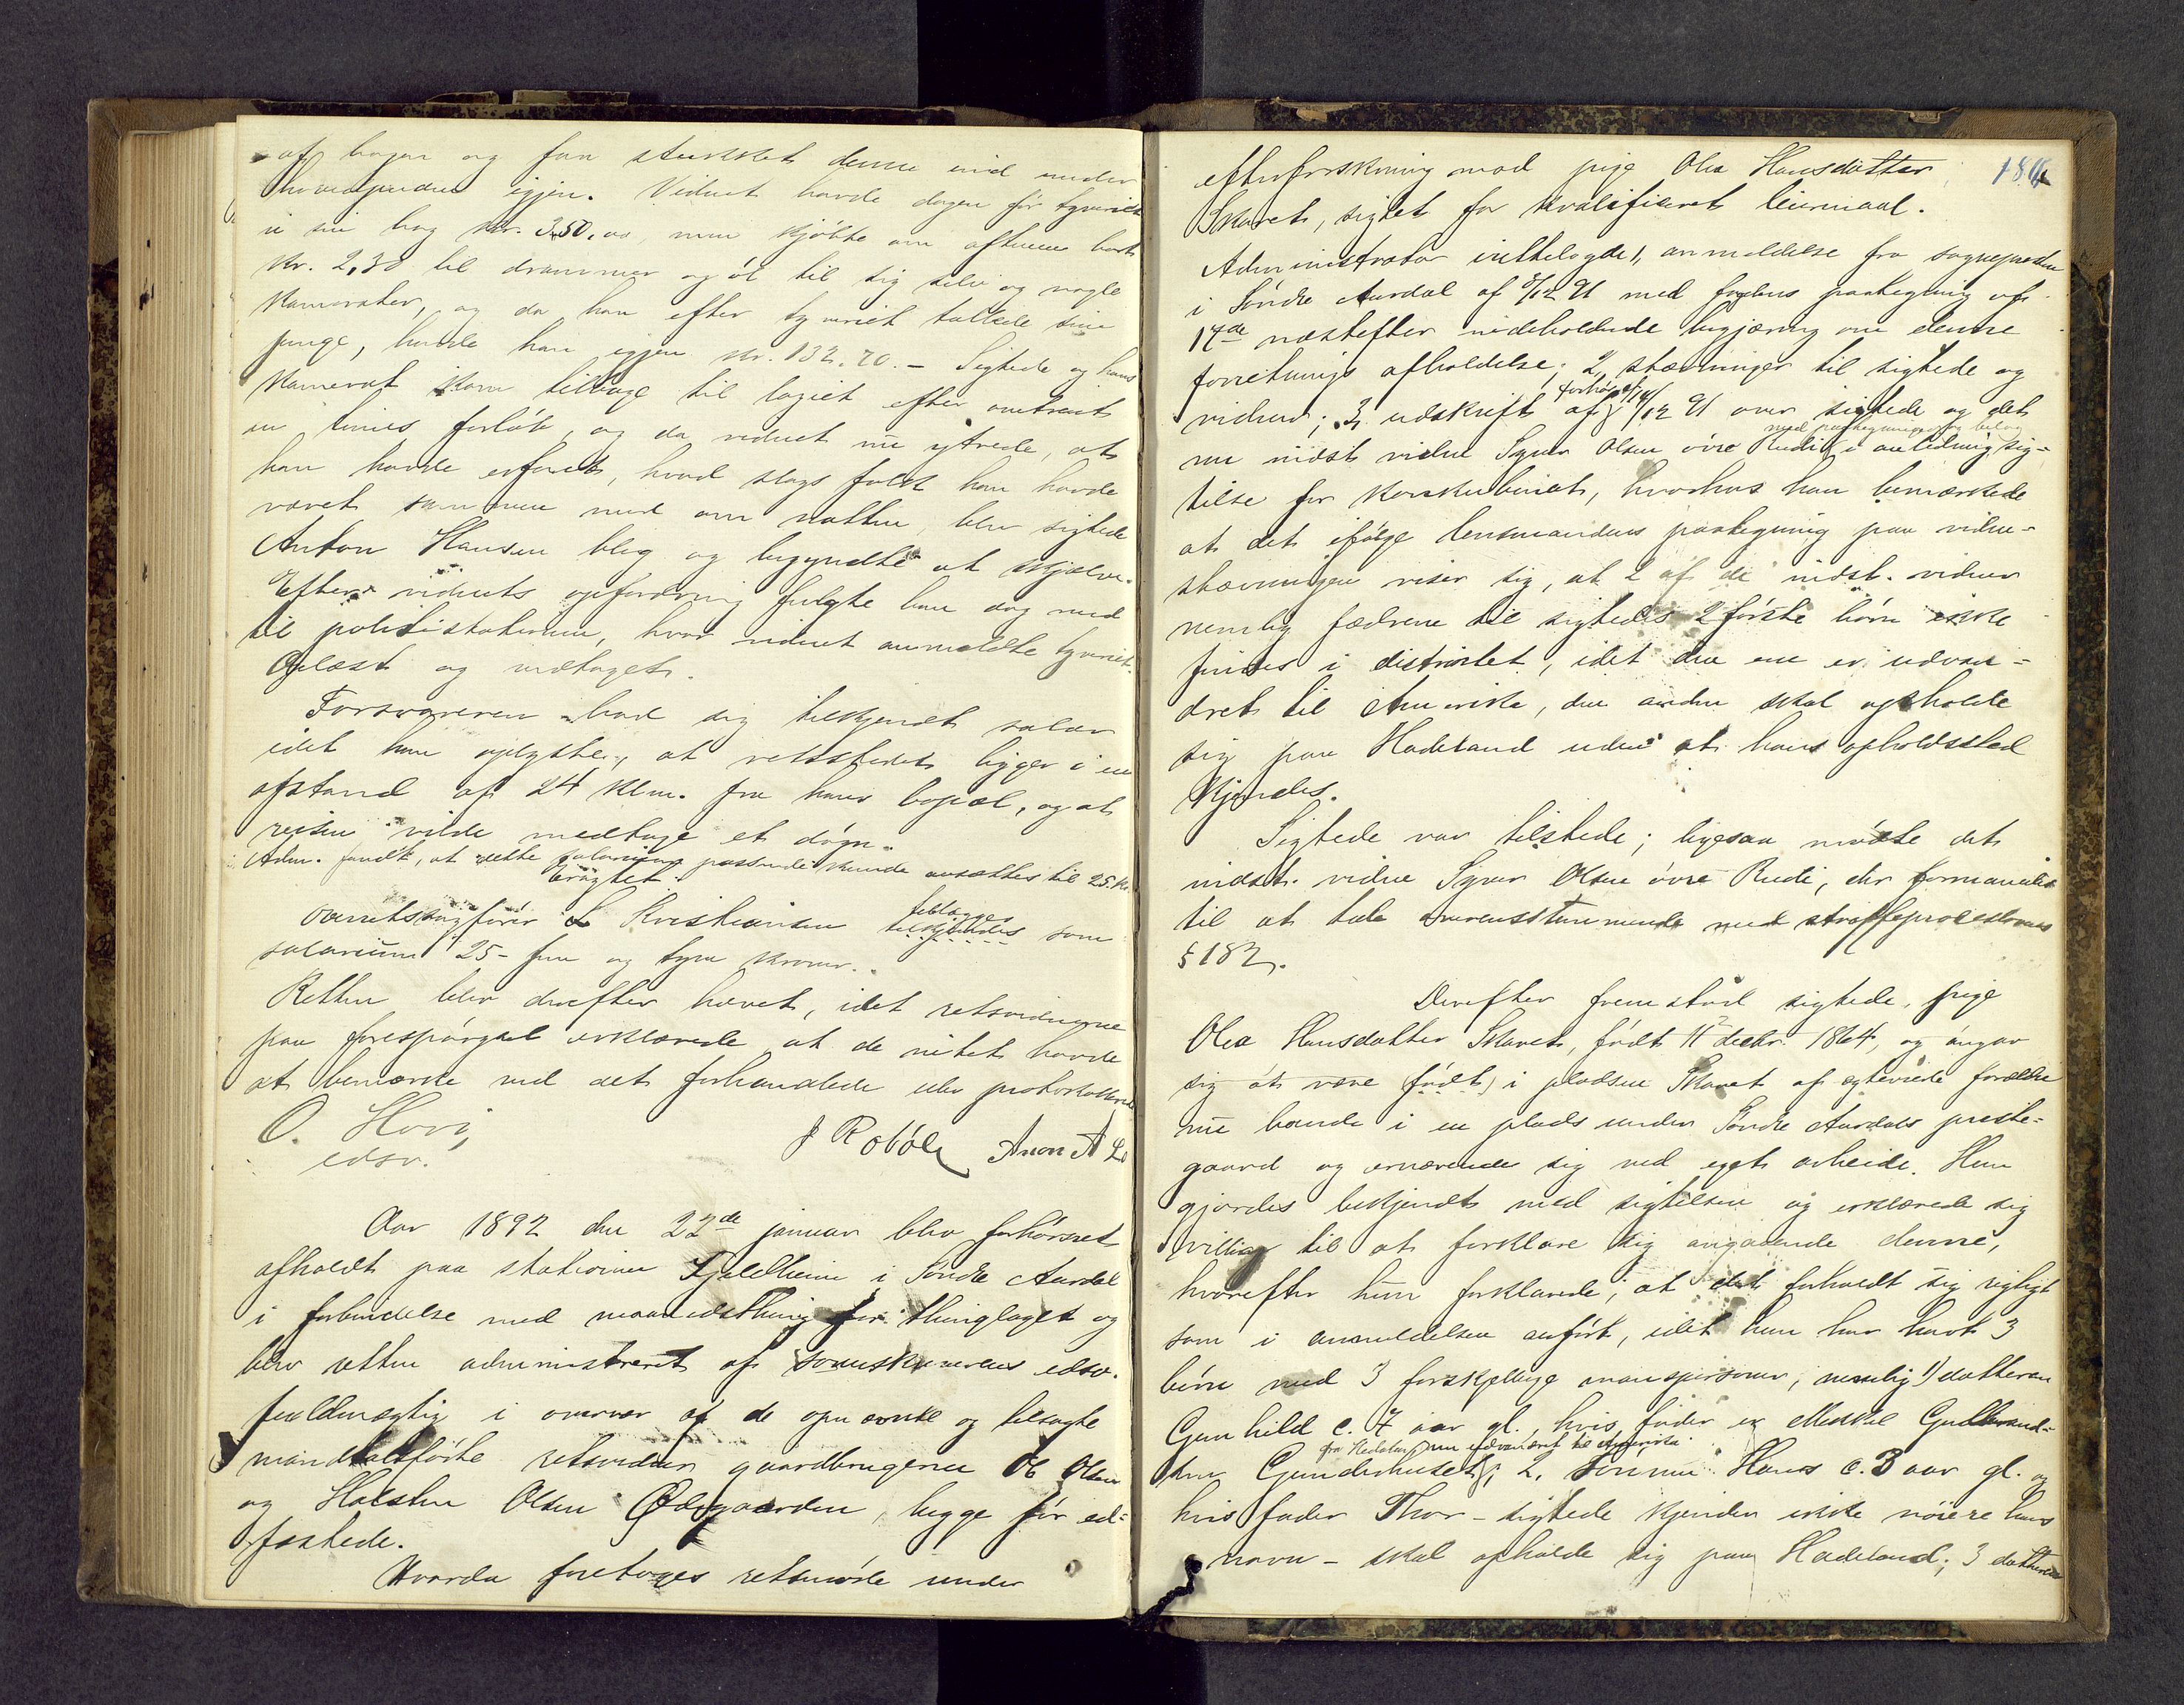 af bogen og fan stukket denne ind under
hovedpuden igjen. Vidnet havde dagen før tyveriet
i sin bog kr. 350.00, men kjøbte om aftenen bort
kr. 2,30 til drammer og øl til sig selv og nogle
kamerater, og da han efter tyveriet tællede sine
penge, havde han igjen kr. 132.70. – Sigtede og hans
kamerat kom tilbage til logiet efter omtrent
en times forløb, og da vidnet nu ytrede, at
han havde erfaret, hvad slags folk han havde
været sammen med om natten, blev sigtede
Anton Hansen bleg og begyndte at skjælve.
Efter vidnets opfordring fulgte han dog med
til politistationen, hvor vidnet anmeldte tyveriet.
Oplæst og vedtaget.
Forsvareren bad sig tilkjendt salær
idet han oplyste, at retsstedet ligger i en
afstand af 24 klm. fra hans bopæl, og at
reisen vilde medtage et døgn.
Adm. fandt, at dette salarium passende kunde ansættes til 25 kr.
Eragtet:
Overretssagfører Kristiansen tilkjendes tillægges som
salarium 25 – fem og tyve kroner.
Retten blev derefter hævet, idet retsvidnerne
paa forespørgsel erklærede at de intet havde
at bemærke ved det forhandlede eller protokollerede
O. Hovi,
edsv.
J Robøle Aron A Lo
Aar 1892 den 22de januar blev forhørsret
afholdt paa stationen Fjeldheim i Søndre Aurdal
i forbindelse med maanedsthing for thinglaget og
blev retten administreret af sorenskriverens edsv.
fuldmægtig i overvær af de opnævnte og tilsagte
mandtalsførte retsvidner gaardbrugerne Ole Olsen
og Halsten Olsen Ødegaarden, begge før ed-
fæstede.
Hvorda foretoges retsmøde under
186
efterforskning mod pige Olea Hansdatter
Skaret, sigtet for kvalificeret leiermaal.
Administrator irettelagde 1, anmeldelse fra sognepresten
i Søndre Aurdal af 5/12 91 med fogdens paategning af
17de næstefter indeholdende begjæring om denne
forretnings afholdelse; 2, stævninger til sigtede og
vidner; 3, udskrift af forhør af 14/12 91 over sigtede og det
med paategninger og bilag
nu indst. vidne Syver Olsen øvre Rudi i anledning sig-
telse for horskebenet, hvorhos han bemærkede
at det ifølge lensmandens paategning paa vidne-
stævningen viser sig, at 2 af de indst. vidner
nemlig fædrene til sigtedes 2 første børn ikke
findes i distriktet, idet den ene er udvan-
dret til Amerika, den anden skal opholde
sig paa Hadeland uden at hans opholdssted
kjendes.
Sigtede var tilstede; ligesaa mødte det
indst. vidne Syver Olsen øvre Rudi, der formanedes
til at tale overensstemmende med straffeproceslovens
§ 182.
Derefter fremstod sigtede, pige
Olea Hansdatter Skaret, født 11 decbr. 1864, og angav
sig at være (født) i pladsen Skaret af egteviede forældre
nu boende i en plads under Søndre Aurdals preste-
gaard og ernærende sig ved eget arbeide. Hun
gjordes bekjendt med sigtelsen og erklærede sig
villig til at forklare sig angaaende denne,
hvorefter hun forklarede, at det forholdt sig rigtigt
som i anmeldelsen anført, idet hun har havt 3
børn med 3 forskjellige mandspersoner, nemlig 1) datteren
Gunhild c. 7 aar gl. hvis fader er Mikkel Gulbrand-
fra Hedalen, nu udvandret til Amerika.
sen Gunderhuset; 2, sønnen Hans c. 3 aar gl. og
hvis fader Thor – sigtede kjender ikke nøiere hans
navn – skal opholde sig paa Hadeland; 3 datteren